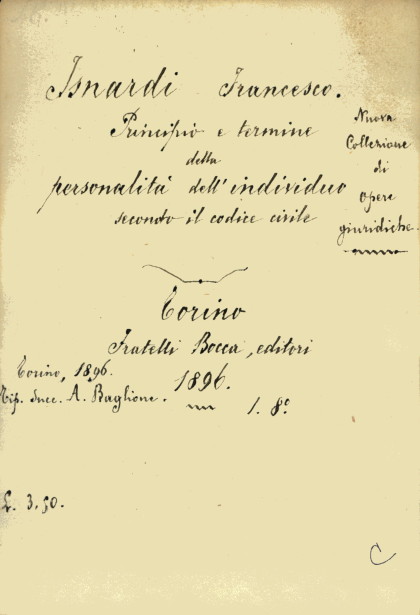 Isnardi Francesco.
Principio e termine
della
personalità dell'individuo
secondo il codice civile
Nuova
Collezione
di
opere
giuridiche.
Torino
Fratelli Bocca, editori
1896.
Torino, 1896.
Tip. Succ. A. Baglione.
1. 8º
£. 3,50.
C